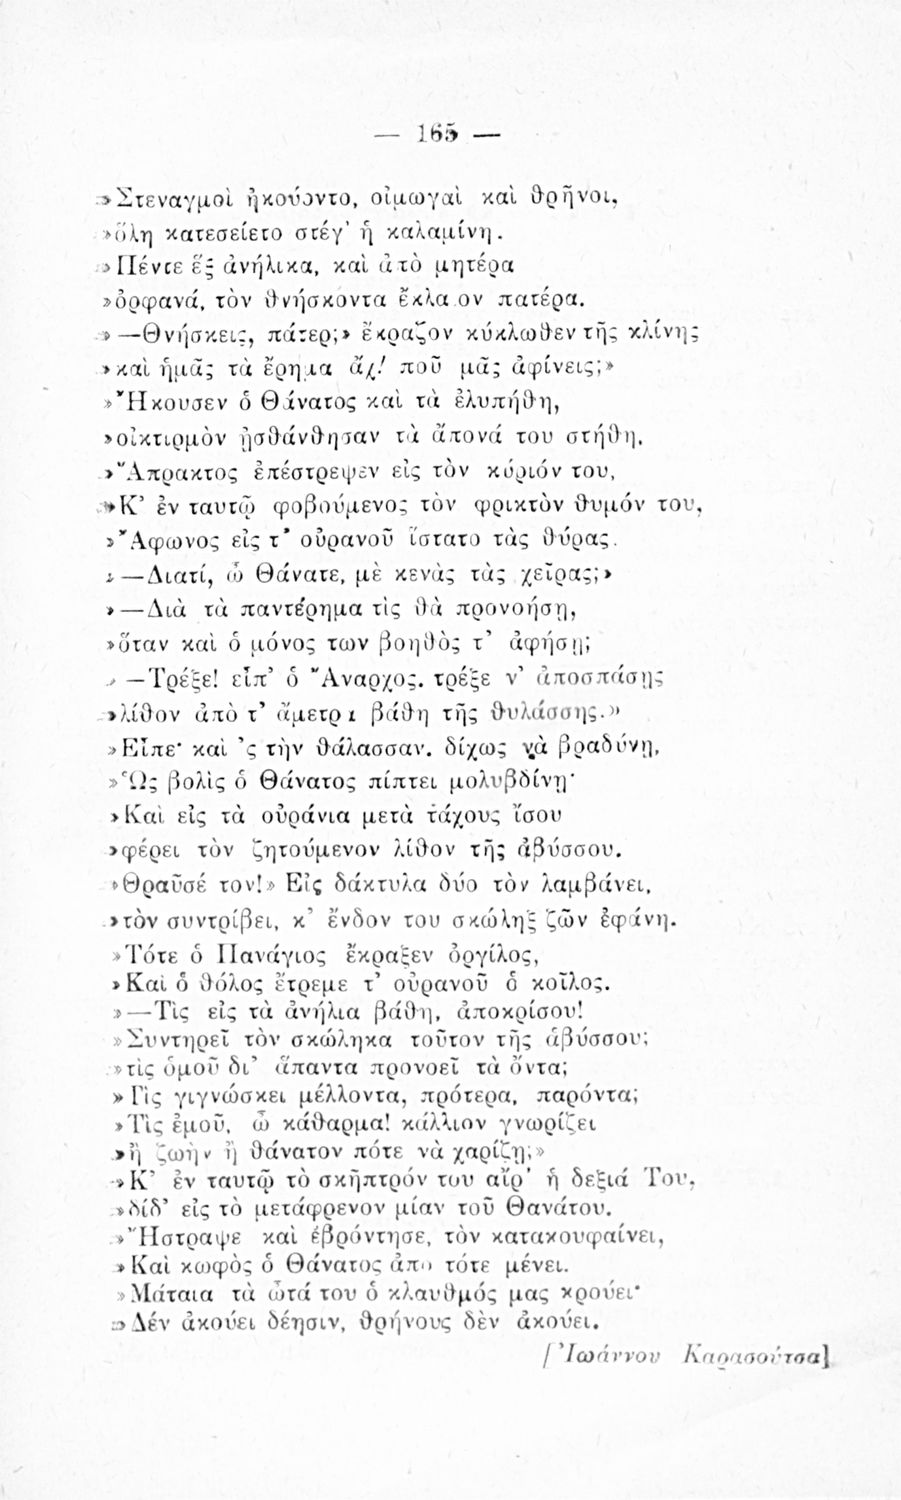 — 165 —
»Στεναγμοὶ ἠκούοντο, οἰμωγαὶ καὶ θρῆνοι,
»ὅλη κατεσείετο στέγ' ἡ καλαμίνη.
»Πέντε ἓξ ἀνήλικα, καὶ ἀπὸ μητέρα
»ὀρφανά, τὸν θνήσκοντα ἔκλαιον πατέρα.
» —Θνήσκεις, πάτερ;» ἔκραζον κύκλωθεν τῆς κλίνης
»καὶ ἡμᾶς τὰ ἔρημα ἄχ! ποῦ μᾶς ἀφίνεις;»
»Ἤκουσεν ὁ Θάνατος καὶ τὰ ἐλυπήθη,
»οἰκτιρμὸν ᾐσθάνθησαν τὰ ἄπονά του στήθη.
»Ἄπρακτος ἐπέστρεψεν εἰς τὸν κύριόν του,
»Κ' ἐν ταυτῷ φοβούμενος τὸν φρικτὸν θυμόν του,
»Ἄφωνος εἰς τ' οὐρανοῦ ἵστατο τὰς θύρας.
» —Διατί, ὦ Θάνατε, μὲ κενὰς τὰς χεῖρας;»
»—Διὰ τὰ παντέρημα τὶς θὰ προνοήσῃ,
»ὅταν καὶ ὁ μόνος των βοηθὸς τ' ἀφήσῃ;
» —Τρέξε! εἶπ' ὁ Ἄναρχος. τρέξε ν' ἀποσπάσῃς
»λίθον ἀπὸ τ' ἄμετρα βάθη τῆς θαλάσσης.»
»Εἶπε· καὶ 'ς τὴν θάλασσαν. δίχως νὰ βραδύνῃ,
»Ὡς βολὶς ὁ Θάνατος πίπτει μολυβδίνη·
»Καὶ εἰς τὰ οὐράνια μετὰ τάχους ἴσου
»φέρει τὸν ζητούμενον λίθον τῆς ἀβύσσου.
»Θραῦσέ τον!» Εἰς δάκτυλα δύο τὸν λαμβάνει,
»τὸν συντρίβει, κ' ἔνδον του σκώληξ ζῶν ἐφάνη.
»Τότε ὁ Πανάγιος ἔκραξεν ὀργίλος,
»Καὶ ὁ θόλος ἔτρεμε τ' οὐρανοῦ ὁ κοῖλος.
»—Τὶς εἰς τὰ ἀνήλια βάθη, ἀποκρίσου!
»Συντηρεῖ τὸν σκώληκα τοῦτον τῆς ἀβύσσου;
»τὶς ὁμοῦ δι' ἅπαντα προνοεῖ τὰ ὄντα;
»Τὶς γιγνώσκει μέλλοντα, πρότερα, παρόντα;
»Τὶς ἐμοῦ, ὦ κάθαρμα! κάλλιον γνωρίζει
»ἢ ζωὴν ἢ θάνατον πότε νὰ χαρίζῃ;»
»Κ' ἐν ταυτῷ τὸ σκῆπτρόν του αἴρ' ἡ δεξιά Του,
»δίδ' εἰς τὸ μετάφρενον μίαν τοῦ Θανάτου.
»Ἤστραψε καὶ ἐβρόντησε, τὸν κατακουφαίνει,
»Καὶ κωφὸς ὁ Θάνατος ἀπὸ τότε μένει.
»Μάταια τὰ ὦτά του ὁ κλαυθμός μας κρούει·
»Δέν ἀκούει δέησιν, θρήνους δὲν ἀκούει.
[Ἰωάννου Καρασούτσα]